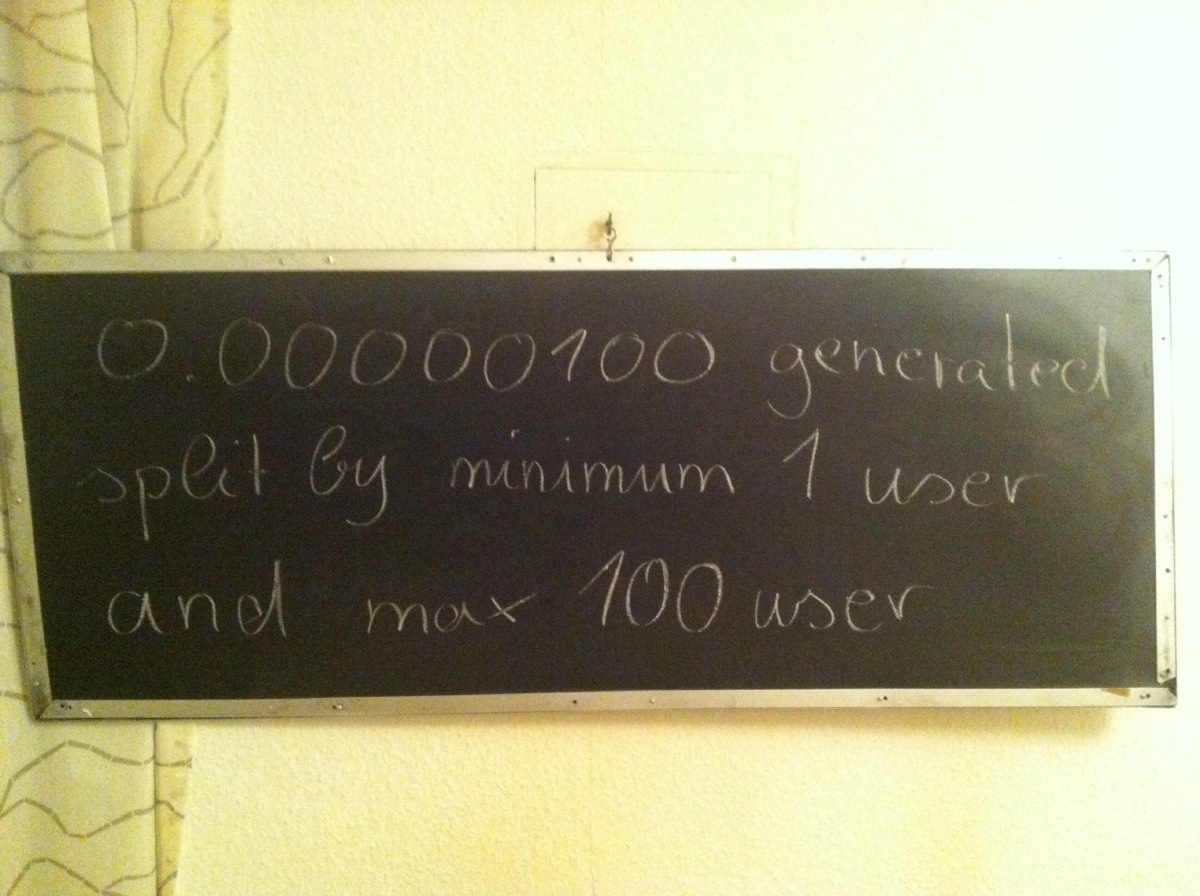 0.00000100 generated
split by minimum 1 user
and max 100 user